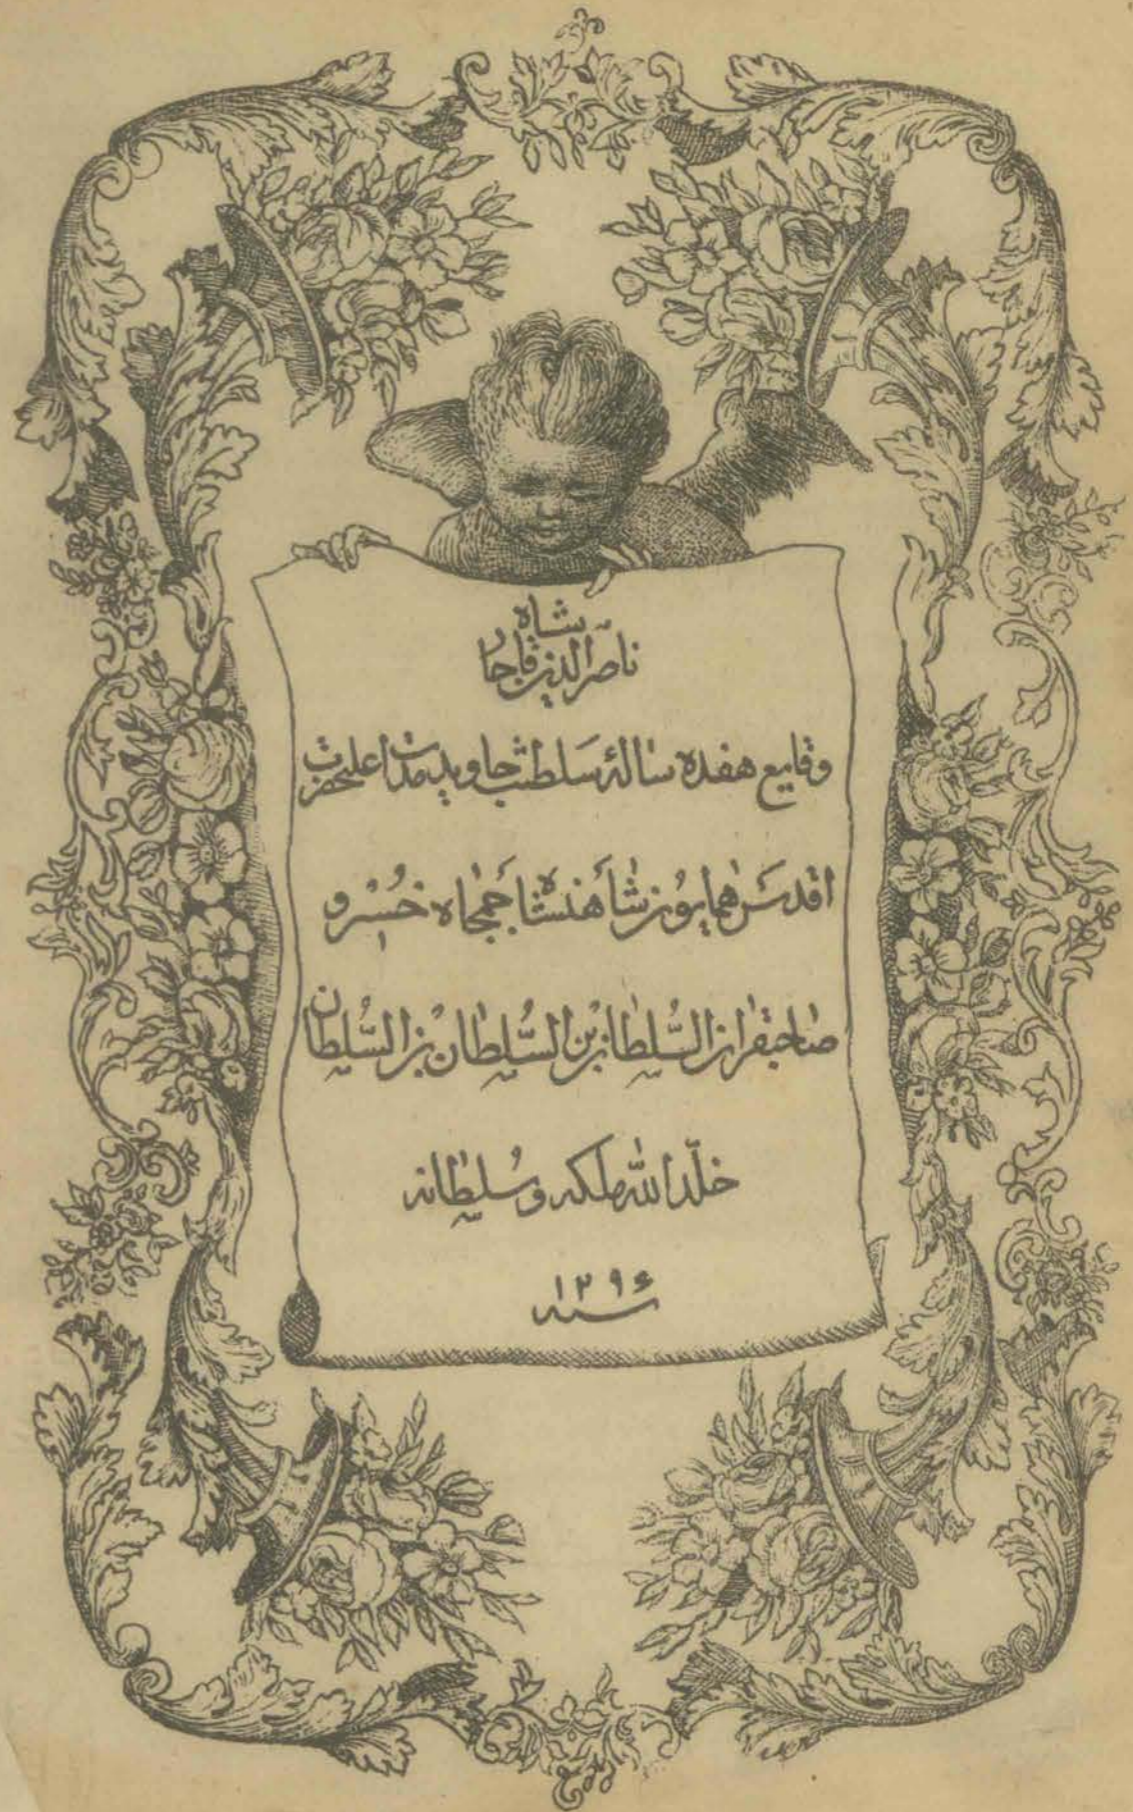 ناصر الدین شاه قاجار
وقایع هفده سالهٔ سلطنت جاوید مدت اعلیحضرت
اقدس همایون شاهنشاه جمجاه خسرو
صاحبقران السُّلطان بن السُّلطان بن السُّلطان
خلّد الله ملکه و سُلطانه
سنه ۱۲۹۴